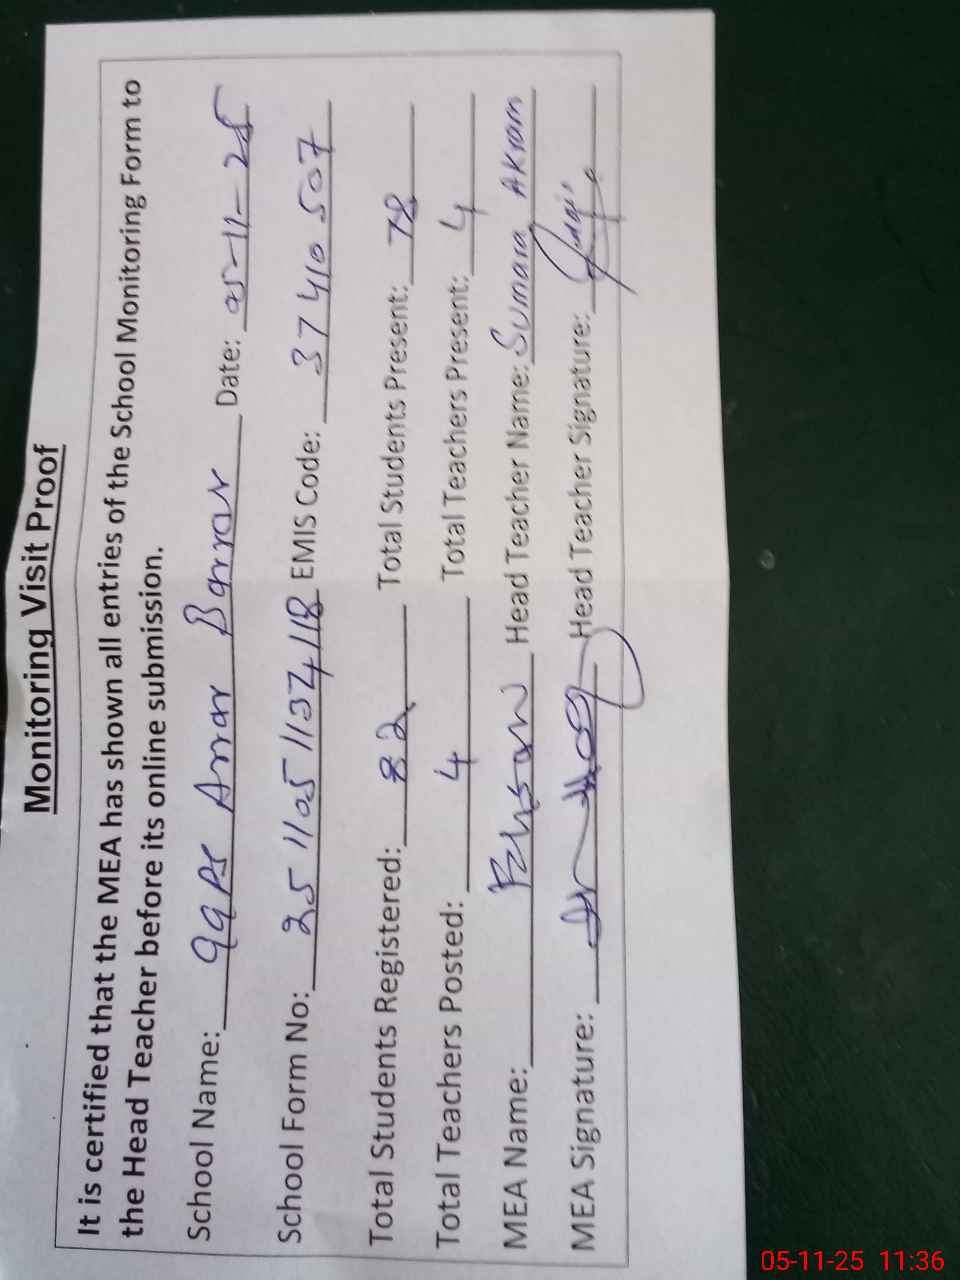 Monitoring Visit Proof
It is certified that the MEA has shown all entries of the School Monitoring Form to
the Head Teacher before its online submission.
School Name: GGPS Arrar Barrar Date: 05-11-25
School Form No: 25110511374118 EMIS Code: 37410507
Total Students Registered: 82 Total Students Present: 78
Total Teachers Posted: 4 Total Teachers Present: 4
MEA Name: Ehsan Head Teacher Name: Sumara Akram
MEA Signature: Head Teacher Signature:
05-11-25 11:36